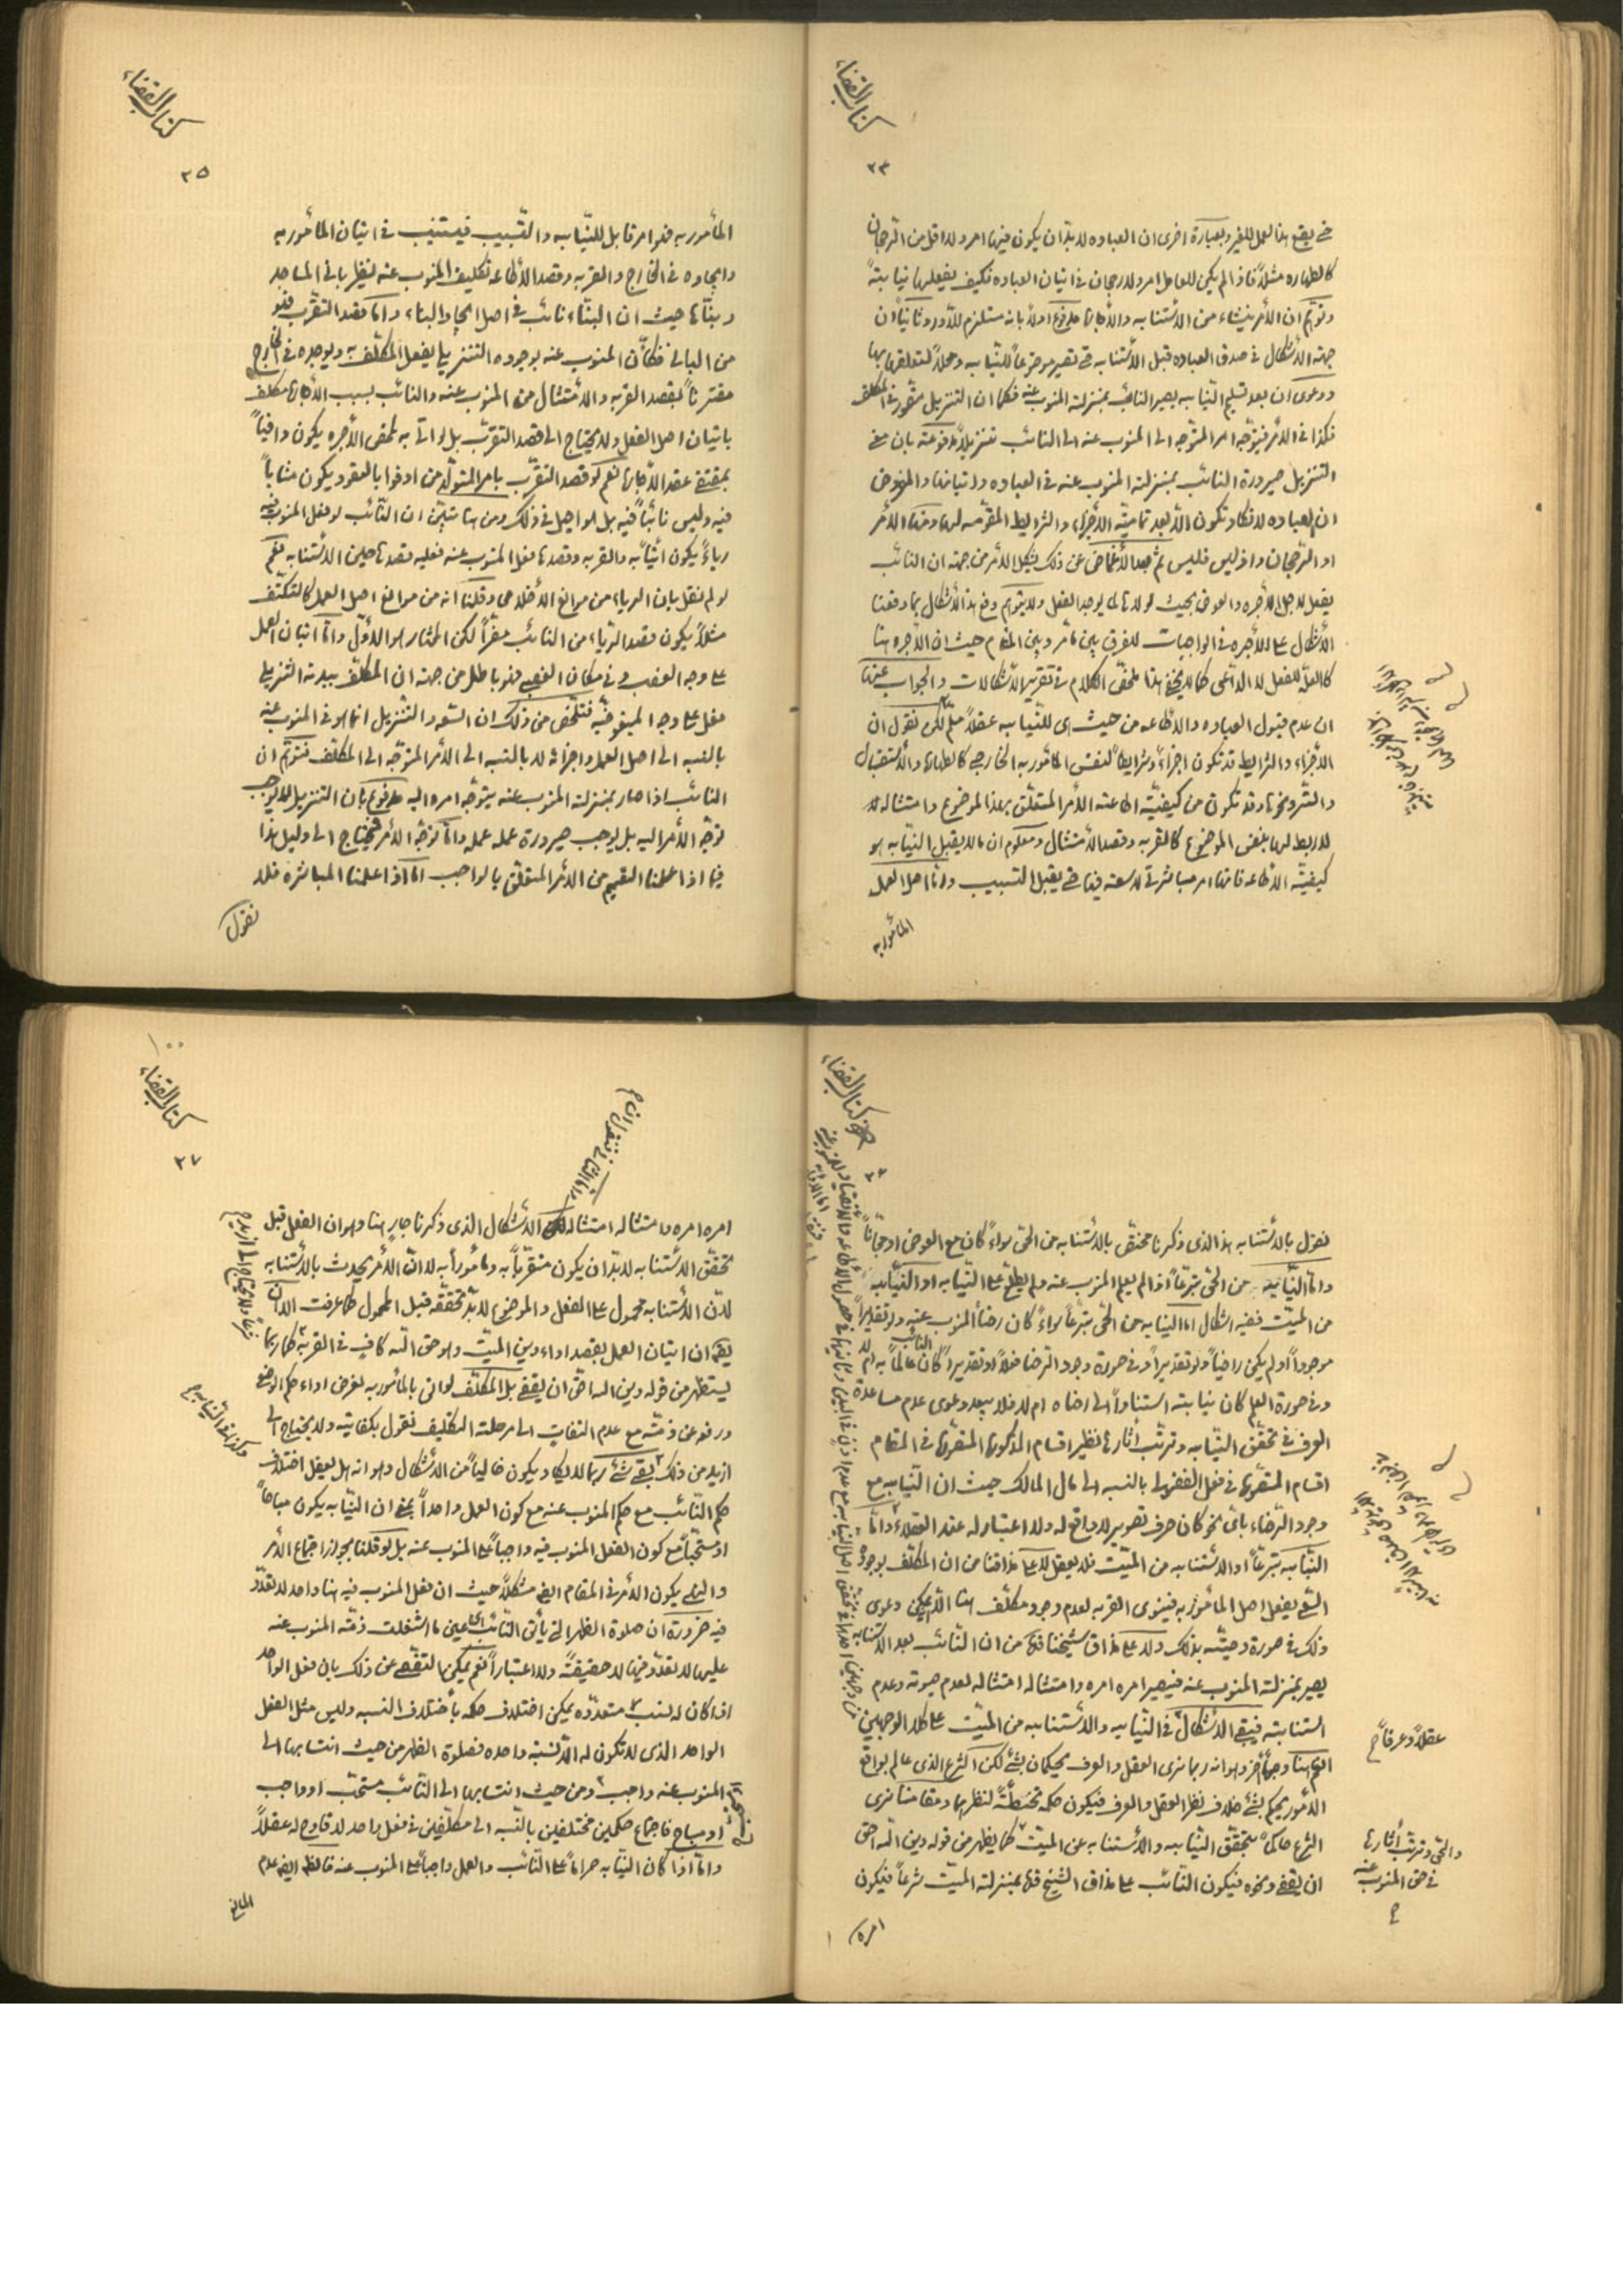 كتاب القضاء
٢٣
حتى يقع هذا العمل للغير وبعبارة اخرى ان العباده لا بدّ ان يكون فيها امر ولا اقل من الرجحان
كالطهاره مثلاً فاذا لم يكن للعامل امر ولا رجحان في اتيان العباده فكيف يفعلها نيابتةً
وتوهّم ان الأمر ينشاء من الاستنابه والأجاره مدفوع اولاً بانه مستلزم للدّور وثانياً ان
جهته الأشكال في صدق العباده قبل الأستنابه حتى تصير موضوعاً للنيّابه ومحلاً لتعلقها بها
ودعوى ان بعد تسليم النيّابه يصير النائب بمنزلته المنوب عنه فكما ان التنزيل متصوّر في المكلف
فكذا في الأمر فيتوجّه امر المتوجّه الى المنوب عنه الى النائب تنزيلاً مدفوعته بان معنى
التنزيل صيرورة النائب بمنزلته المنوب عنه في العباده واتيانها والمفروض
ان العباده لا تكاد تكون الاّ بعد تماميّته الأجزاء والشرايط المقوّمه لها ومنها الأمر
او الرّجحان واذ ليس فليس ثم بعد الأغماض عن ذلك يشكل الأمر من جهته ان النائب
يفعل لاجل الأجره والعوض بحيث لولاها لم يوجد الفعل ولا يتوهّم دفع هذا الأشكال بما دفعنا
الأشكال على الأجره في الواجبات للفرق بين ما مر وبين المقام حيث ان الأجره هنا
كالعلّة للفعل لا الدّاعى كما لا يخفى هذا ملخّص الكلام في تقرير الأشكالات والجواب عنها
ان عدم قبول العباده والاطاعه من حيث هى للنيّابه عقلاً مسلّم لكن نقول ان
الأجزاء والشرايط قد تكون اجزاءً وشرايطاً لنفس المأمور به الخارجى كالطهاره والأستقبال
والتستّر ونحوها وقد تكون من كيفيّته اطاعته الأمر المتعلّق بهذا الموضوع وامتثاله
لا ربط لها بنفس الموضوع كالقربه وقصد الأمتثال ومعلوم ان ما لا يقبل النيّابه هو
كيفيّته الاطاعه فانها امر مباشرى لا سعته فيها حتى يقبل التسبيب وامّا اصل العمل
المأمور به
كتاب القضاء
٢٥
المأمور به فهو امر قابل للنّيابه والتّسبيب فيستنيب في اتيان المأمور به
وايجاده في الخارج والقربه وقصد الأطاعه تكليف المنوب عنه لنظير بانى المساجد
وبنّائها حيث ان البنّاء نائب في اصل ايجاد البناء وامّا قصد التقرّب فهو
من البانى فكأنّ المنوب عنه بوجوده التنزيلى يفعل المكلّف به ويوجده في الخارج
مقترناً بقصد القربه والأمتثال من المنوب عنه والنائب بسبب الأجاره مكلف
باتيان اصل الفعل ولا يحتاج الى قصد التقرّب بل لو اتى به لمحض الأجره يكون وافياً
بمقتضى عقد الأجاره نعم لو قصد التقرّب بامر المتولّد من اوفوا بالعقود يكون مثاباً
فيه وليس نائباً فيه بل هو اصل في ذلك ومن هنا تبيّن ان النّائب لو فعل المنوب فيه
رياءً يكون اتياً به والقربه وقصدها فعل المنوب عنه فعليه قصدها حين الأستنابه نعم
لو لم نقل بان الرياء من موانع الأخلاص وقلنا انه من موانع اصل العمل كالتكتّف
مثلاً يكون قصد الرّياء من النائب مضرّاً لكن المختار هو الأوّل وامّا اتيان العمل
على وجه الغصب وفي مكان الغصبى فهو باطل من جهته ان المكلّف ببدنه التنزيلى
فعل على وجه المبغوضيّه فتلخّص من ذلك ان السّعه والتنزيل انما هو في المنوب عنه
بالنسبه الى اصل العمل واجزائه لا بالنسبه الى الأمر المتوجّه الى المكلّف فتوهّم ان
النائب اذا صار بمنزلته المنوب عنه يتوجّه امره اليه مدفوع بان التنزيل لا يوجب
توجّه الأمر اليه بل يوجب صيرورة عمله عمله وامّا توجّه الأمر فيحتاج الى دليل هذا
فيما اذا علمنا التعميم من الأمر المتعلّق بالواجب امّا اذا علمنا المباشره فلا
نقول
كتاب القضاء
نقول بالأستنابه هذا الذى ذكرنا مختصّ بالأستنابه من الحىّ سواءً كان مع العوض او مجاناً
وامّا النّيابه من الحىّ تبرّعاً اذا لم يعلم المنوب عنه ولم يطّلع على النّيابه او النّيابه
من الميّت ففيه اشكال امّا النيابه من الحىّ تبرّعاً سواءً كان رضأ المنوب عنه ولو تقديراً
موجوداً او لم يكن راضياً ولو تقديراً وفي صورة وجود الرّضا فعلاً او تقديراً كان النّائب عالماً به ام لا
وفي صورة العلم كان نيابته استناداً الى رضاه ام لا فلا يبعد دعوى عدم مساعدة
العرف في تحقّق النيّابه وترتّب آثارها نظير اقسام المذكوره المتصوّره في المقام
اقسام المتصوّره في فعل الفضولى بالنسبه الى مال المالك حيث ان النّيابه مع
وجود الرّضاء باىّ نحو كان صرف تصوير لا واقع له ولا اعتبار له عند العقلاء وامّا
النّيابه تبرّعاً او الأستنابه من الميّت فلا يعقل لا على مذاقنا من ان المكلّف بوجوده
السّعى يفعل اصل المأمور به فينوى القربه لعدم وجود مكلّف هنا الاّ ان يمكن دعوى
ذلك في صورة وصيّته بذلك ولا على مذاق شيخنا قدّه من ان النّائب بعد الاستنابه
يصير بمنزلته المنوب عنه فيصير امره امره وامتثاله امتثاله لعدم حيوته وعدم
استنابته فيبقى الأشكال في النّيابه والأستنابه من الميّت على كلا الوجهين
نعم هنا وجهاً آخر وهو انه ربما نرى العقل والعرف يحكمان بشئ لكن الشرع الذى عالم بواقع
الأمور يحكم بشئ خلاف نظر العقل والعرف فيكون حكمه تخطئةً لنظرهما ومقامنا نرى
الشرع حاكماً بتحقّق النّيابه والأستنابه عن الميّت كما يظهر من قوله دين الله احقّ
ان يقضى ونحوه فيكون النّائب على مذاق الشيخ قدّه بمنزلته الميّت شرعاً فيكون
امره
عقلاً وعرفاً
والحىّ وترتّب آثارها
في حق المنوب عنه
١٠٠
كتاب القضاء
٢٧
امره امره وامتثاله امتثاله لكن الأشكال الذى ذكرنا جارٍ هنا وهو ان الفعل قبل
تحقّق الأستنابه لا بدّ ان يكون متقرّباً به ومأموراً به لا انّ الأمر يحدث بالأستنابه
لانّ الأستنابه محمول على الفعل والموضوع لا بدّ تحقّقه قبل المحمول كما عرفت الاّ ان
يقال ان اتيان العمل بقصد اداء دين الميّت وهو حق الله كافٍ في القربه كما ربما
يستظهر من قوله دين الله احقّ ان يقضى بل المكلّف لو اتى بالمأمور به لغرض اداء حكم الوضعى
ورفعه عن ذمّته مع عدم التفاتٍ الى مرحلته التكليف نقول بكفايته ولا يحتاج الى
ازيد من ذلك بقى شئ ربما لا يكاد يكون خالياً من الأشكال وهو انه هل يعقل اختلاف
حكم النّائب مع حكم المنوب عنه مع كون العمل واحداً بمعنى ان النيّابه يكون مباحاً
او مستحبّاً مع كون الفعل المنوب فيه واجباً على المنوب عنه بل لو قلنا بجواز اجتماع الأمر
والنهى يكون الأمر في المقام ايضاً مشكلاً حيث ان فعل المنوب فيه هنا واحد لا تعدّد
فيه ضرورة ان صلوة الظهر التى يأتى النّائب بها عين ما اشتغلت ذمّته المنوب عنه
عليها لا تعدّد فيها لا حقيقتةً ولا اعتباراً نعم يمكن التفصّى عن ذلك بان فعل الواحد
اذا كان له نسب متعدّده يمكن اختلاف حكمه بأختلاف النسبه وليس مثل الفعل
الواحد الذى لا تكون له الاّ نسبته واحده فصلوة الظهر من حيث انتسابها الى
المنوب عنه واجب ومن حيث انتسابها الى النّائب مستحبّ او واجب
او مباح فاجتماع حكمين مختلفين بالنّسبه الى مكلّفين في فعل واحد لا قادح له عقلاً
وامّا اذا كان النّيابه حراماً على النّائب والعمل واجباً على المنوب عنه فالظاهر ايضاً عدم
المانع